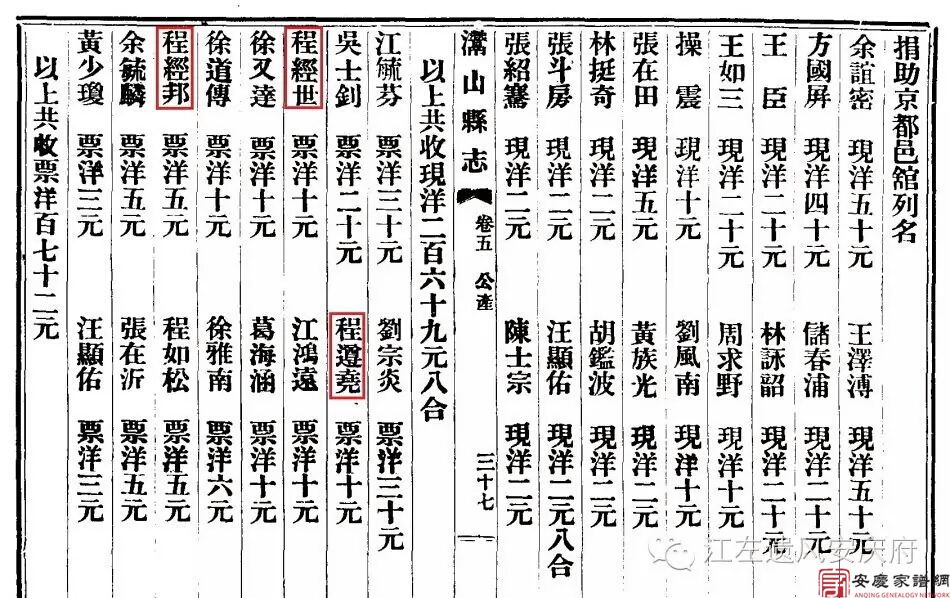 捐助京都邑舘列名
余誼密 現洋五十元 王澤溥 現洋五十元
方國屏 現洋四十元 儲春浦 現洋二十元
王臣 現洋二十元 林詠韶 現洋二十元
王如三 現洋二十元 周求野 現洋十元
操震 現洋十元 劉風南 現洋十元
張在田 現洋五元 黃族光 現洋二元
林挺奇 現洋二元 胡鑑波 現洋二元
張斗房 現洋二元 汪顯佑 現洋二元八合
張紹騫 現洋二元 陳士宗 現洋二元
灊山縣志 卷五 公產 三十七
以上共收現洋二百六十九元八合
江毓芬 票洋三十元 劉宗炎 票洋三十元
吳士釗 票洋二十元 程遵堯 票洋十元
程經世 票洋十元 江鴻遠 票洋十元
徐又達 票洋十元 葛海涵 票洋十元
徐道傳 票洋十元 徐雅南 票洋六元
程經邦 票洋五元 程如松 票洋五元
余毓麟 票洋五元 張在沂 票洋五元
黃少瓊 票洋三元 汪顯佑 票洋三元
以上共收票洋百七十二元
江左遗风安庆府
安慶家譜網
ANQING GENEALOGY NETWORK